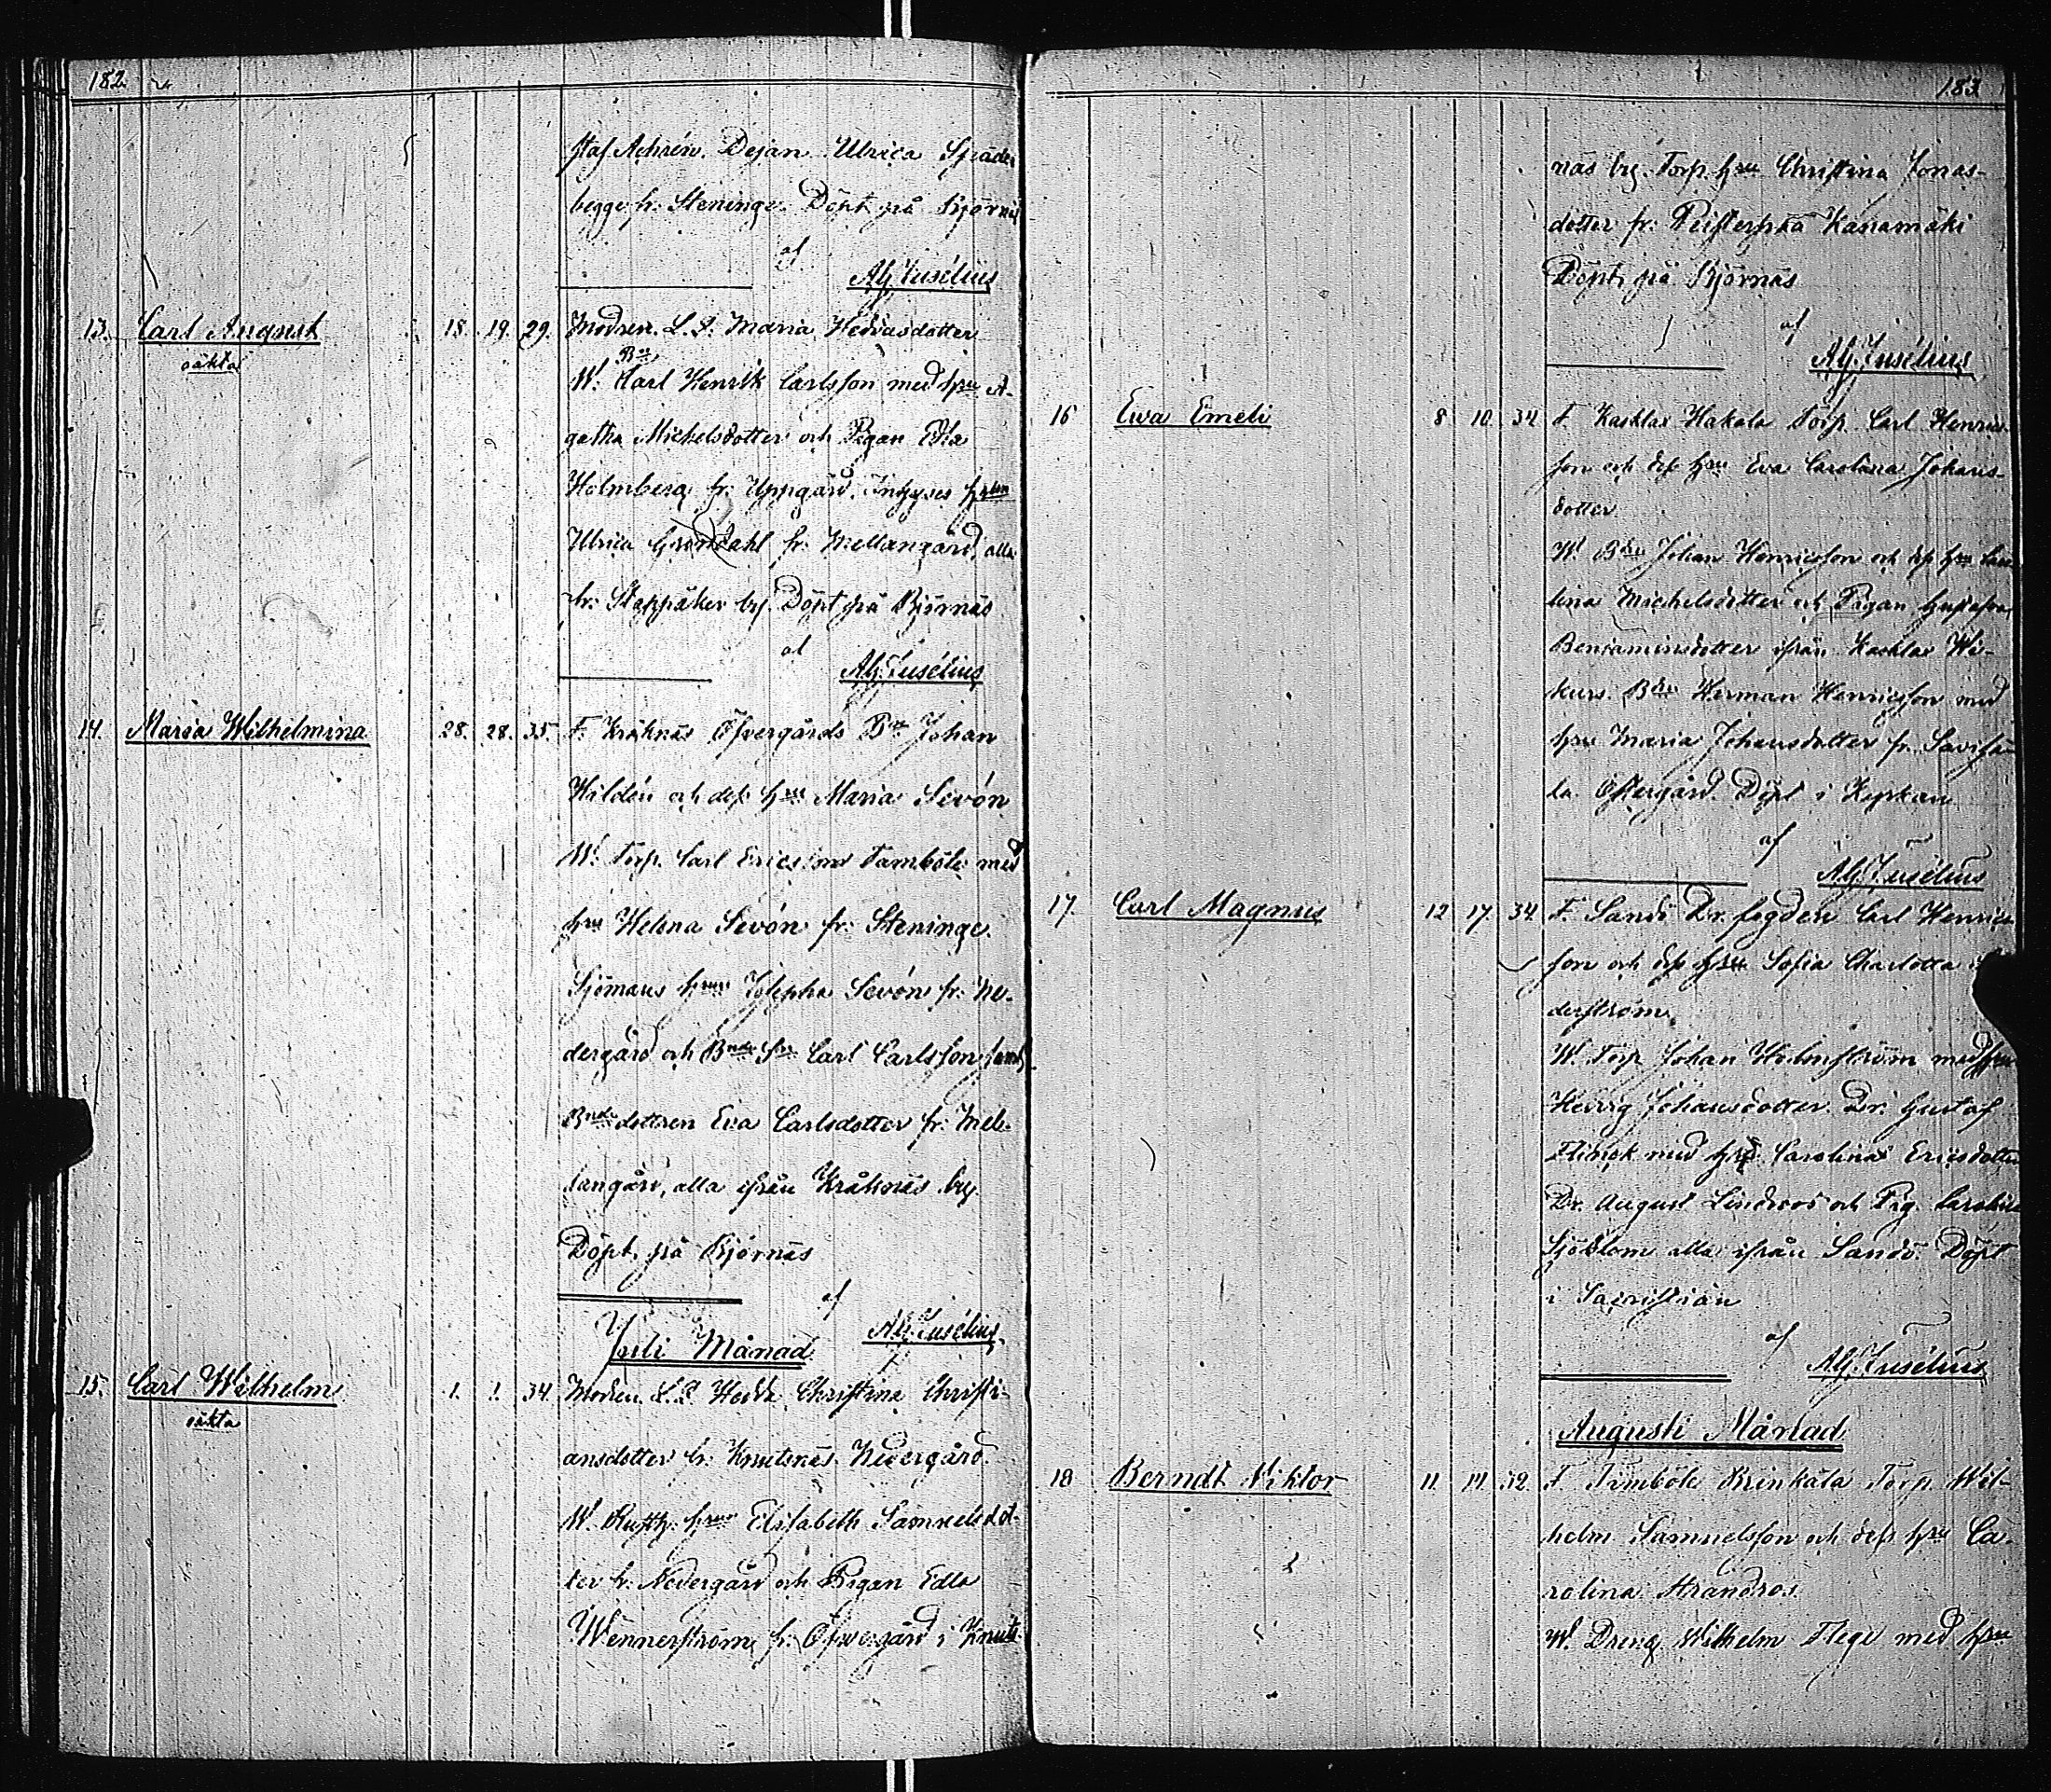 182
staf Achrén. Dejan Ulrica
begge fr. Steninge. Döpt på Björnäs
af
Alf. Jusélius
13. Carl August 18. 19. 29. Modren L. P. Maria Hedvasdotter
oäkta
W: Bde Carl Henrik Carlsson med hru A-
gatha Michelsdotter och Pigan Edla
Holmberg fr. Uppgård. Inhyses hrun
Ulrica Gröndahl fr. Mellangård, alla
fr. Stappåker by. Döpt på Björnäs
af
Alf. Jusélius
14. Maria Wilhelmina 28. 28. 35. F. Kråknäs Öfvergårds Bde Johan
Wildén och dess hru Maria Sevón
W: Torp. Carl Ericsson Tamböle med
hru Helena Sevón fr. Steninge.
Sjömans hrun Josepha Sevón fr. Ne-
dergård och Bnde Sn Carl Carlsson samt
Bnde dottren Eva Carlsdotter fr. Mel-
langård, alla ifrån Kråknäs by.
Döpt på Björnäs
af
Alf. Jusélius
Juli Månad
15. Carl Wilhelm 1. 1. 34. Modren L. P. Hedda Christina Christi-
oäkta
ansdotter fr. Knutsnäs Nedergård.
W. hrun Elisabeth Samuelsdot-
ter fr. Nedergård och Pigan Edla
Wennerström fr. Öfvergård i Knuts-
183
näs by. Torp. hru Christina Jonas-
dotter fr. Kasamäki
Döpt på Björnäs
af
Alf. Jusélius
16 Ewa Emeli 8 10 34 F. Kasklax Hakala Torp. Carl Henrics-
son och dess hru Eva Carolina Johans-
dotter.
W. Bde Johan Henricsson och dess hru Caro-
lina Michelsdotter och Pigan Gustafva
Benjaminsdotter ifrån Kasklax We-
kurs. Bde Herman Henricsson med
hru Maria Johansdotter fr.
la Östergård. Döpt i Kyrkan
af
Alf. Jusélius
17. Carl Magnus 12 17. 34. F. Sandö Dr. fogden Carl Henrics-
son och dess hru Sofia Charlotta
derström.
W. Torp. Johan Holmström med hru
Hedvig Johansdotter. Dr. Gustaf
Flinck med hru Carolina Ericsdotter
Dr. August Lindroos och Pig. Carolina
Sjöblom alla ifrån Sandö. Döpt
i Sacristian
af
Alf. Jusélius
Augusti Månad
18 Berndt Viktor 11. 14. 32. F. Timböle Torp. Wil-
helm Samuelsson och dess hru Ca-
rolina Strandros.
W. Dreng Wilhelm Flege med hru